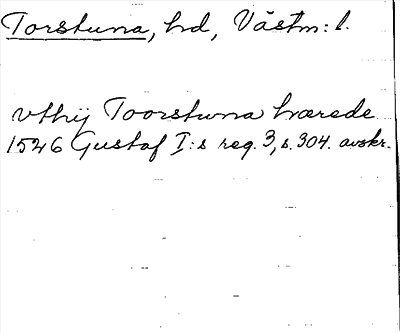 Torstuna, hd, Västm: l.
vthij Toorstwna hærede
1526 Gustaf I:s reg. 3, s. 304. avskr.